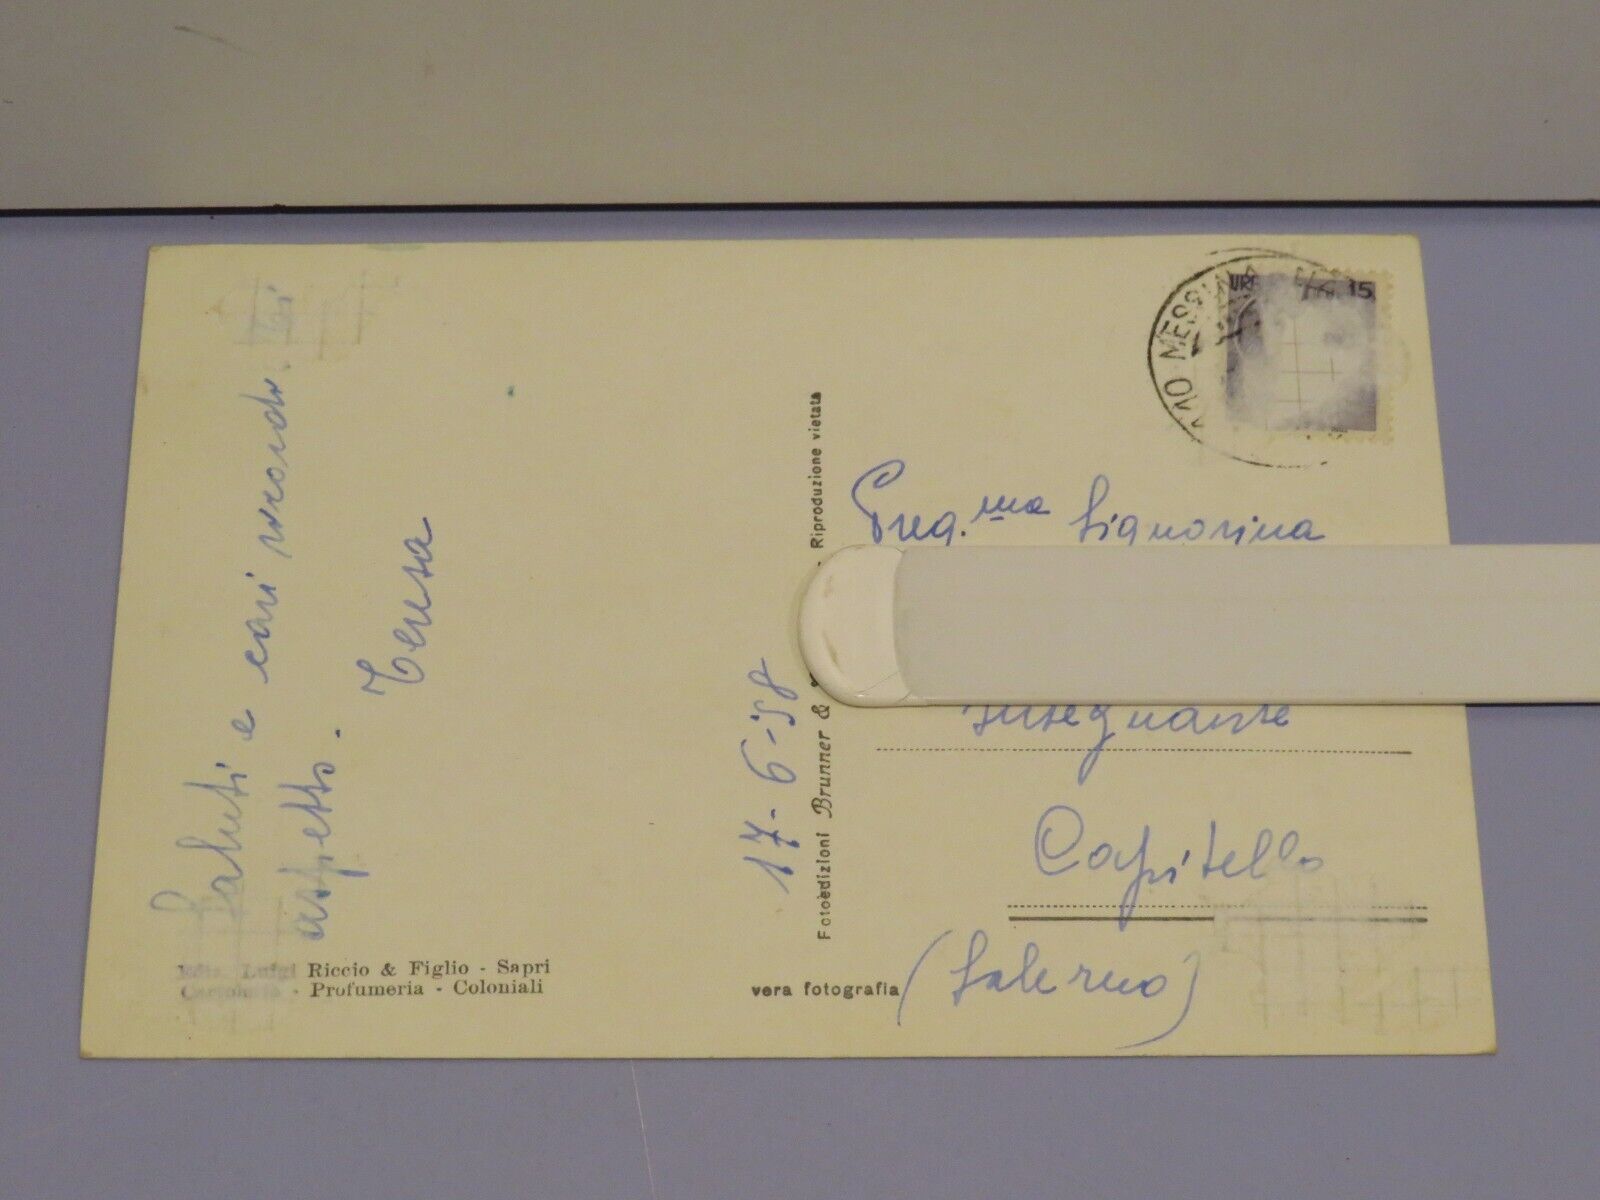 Saluti e cari ricordi. Vi
aspetto.
Teresa
17-6-58
Fotoedizioni Brunner & Riproduzione vietata
Ediz. Luigi Riccio & Figlio - Sapri
Cartoleria - Profumeria - Coloniali
vera fotografia
MESSINA
15
Preg.ma Signorina
Insegnante
Capitello
(Salerno)